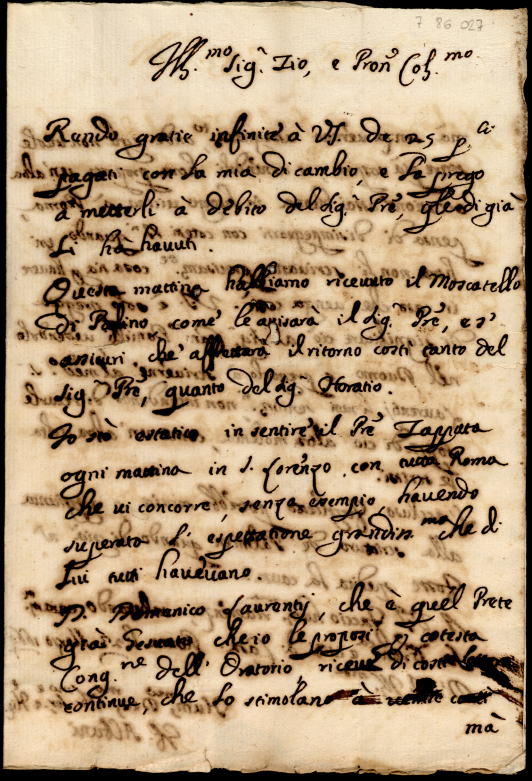 7 86 027
Ill.mo Sig.r Zio, e Pron. Col.mo
Rendo gratie infinite à V.S. de 25 p.ti
pagati con la mia di cambio, e la prego
à metterli à debito del Sig.r Pre, che di già
li hà hauuti.
Questa mattina habbiamo riceuuto il Moscatello
di come le auisarà il Sig.r Pre, e s'
assicuri che affrettarà il ritorno costì tanto del
Sig.r Pre, quanto del Sig.r Horatio.
Io stò estatico in sentire il Pre Zappata
ogni mattina in S. Lorenzo con tutta Roma
che ui concorre, senza esempio, hauendo
superato l'espettatione grandiss.ma che di
lui tutti haueuano.
D. Domenico Laurentij, che è quel Prete
già Gesuato che io le proposi p cotesta
Cong.ne dell'Oratorio, riceue di costì
continue, che lo stimolano à uenire costì
mà